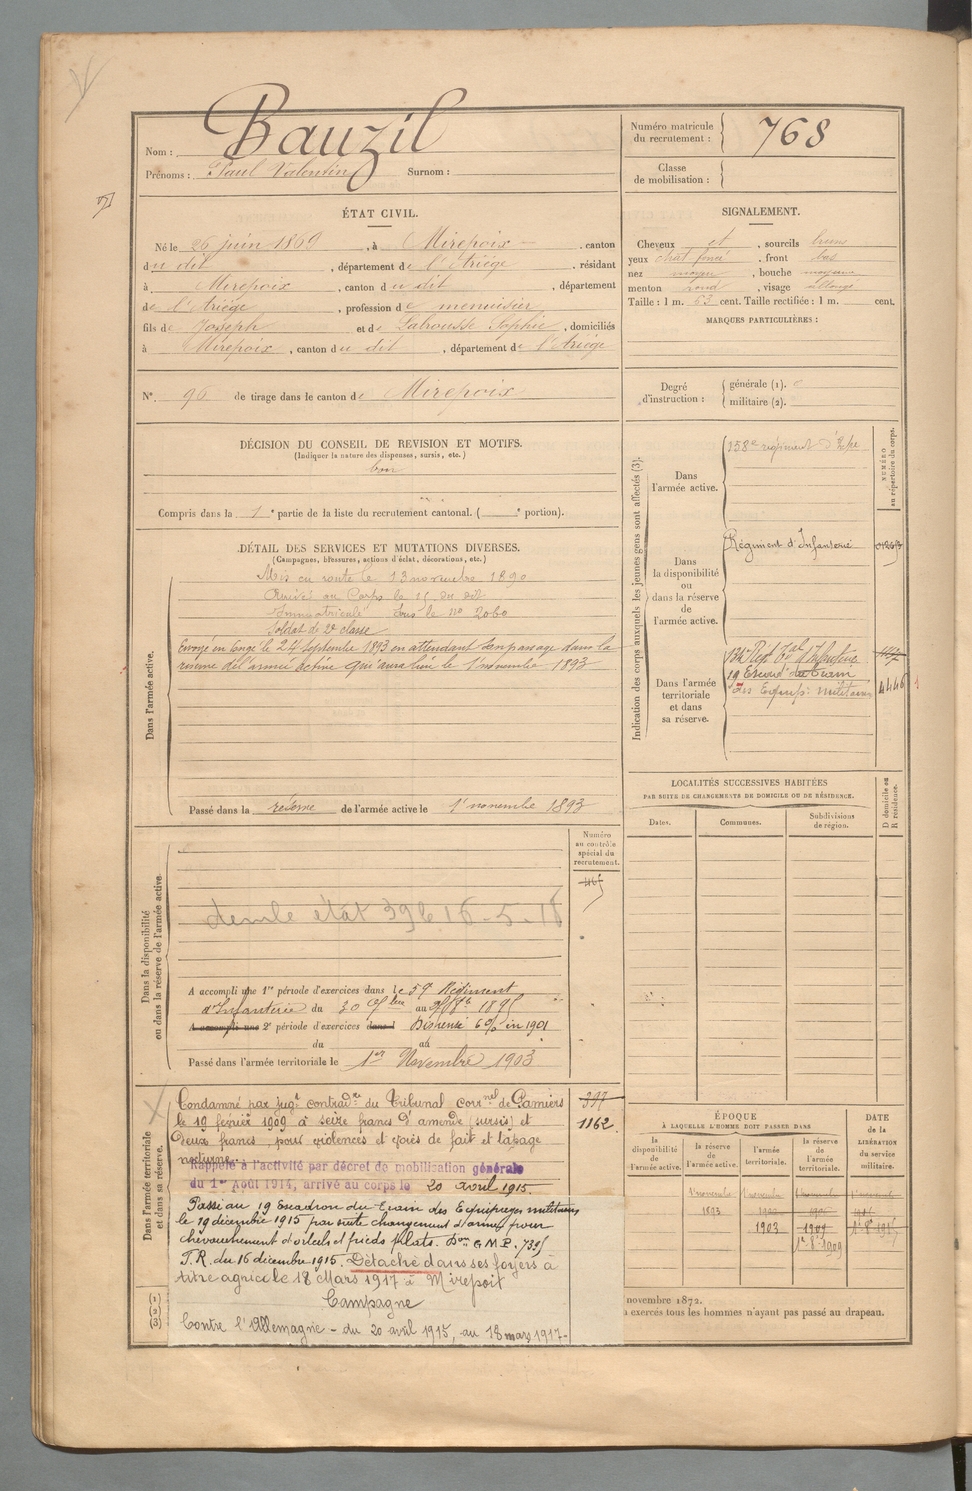 Nom : Bauzil
Prénoms : Paul Valentin Surnom :
Numéro matricule du recrutement : 768
Classe de mobilisation :
ÉTAT CIVIL.
Né le 26 juin 1869, à Mirepoix, canton
du dit, département de l'Ariège, résidant
à Mirepoix, canton du dit, département
de l'Ariège, profession de menuisier
fils de Joseph et de Labrousse Sophie, domiciliés
à Mirepoix, canton du dit, département de l'Ariège
N° 96 de tirage dans le canton de Mirepoix
SIGNALEMENT.
Cheveux et, sourcils bruns
yeux chat. foncé, front bas
nez moyen, bouche moyenne
menton rond, visage allongé
Taille : 1 m. 63 cent. Taille rectifiée : 1 m. cent.
MARQUES PARTICULIÈRES :
Degré d'instruction : générale (1).
militaire (2).
DÉCISION DU CONSEIL DE REVISION ET MOTIFS.
(Indiquer la nature des dispenses, sursis, etc.)
bon
Compris dans la 1e partie de la liste du recrutement cantonal. ( e portion).
DÉTAIL DES SERVICES ET MUTATIONS DIVERSES.
(Campagnes, blessures, actions d'éclat, décorations, etc.)
Dans l'armée active.
Mis en route le 13 novembre 1890
Arrivé au Corps le 15 du dit
Immatriculé sous le no 2060
Soldat de 2e classe
Envoyé en congé le 24 septembre 1893 en attendant son passage dans la
réserve de l'armée active qui aura lieu le 1 novembre 1893
Passé dans la réserve de l'armée active le 1 novembre 1893
Indication des corps auxquels les jeunes gens sont affectés (3).
NUMÉRO au répertoire du corps.
Dans l'armée active.
158e régiment d'Infie
Dans la disponibilité ou dans la réserve de l'armée active.
Régiment d'Infanterie
Dans l'armée territoriale et dans sa réserve.
Regt Tal d'Infanterie
19 Escad du Train
des Equip. militaires
4446
LOCALITÉS SUCCESSIVES HABITÉES
PAR SUITE DE CHANGEMENTS DE DOMICILE OU DE RÉSIDENCE.
Dates. Communes. Subdivisions de région. D domicile ou R résidence.
Dans la disponibilité ou dans la réserve de l'armée active.
Numéro au contrôle spécial du recrutement.
état 396 16-5-18
A accompli une 1re période d'exercices dans le 59 Régiment
d'Infanterie du 30 au 1895
A accompli une 2e période d'exercices dans Dispensé en 1901
du au
Passé dans l'armée territoriale le 1er Novembre 1903
Dans l'armée territoriale et dans sa réserve.
397
1162
Condamné par jugt contradre du Tribunal corrnel de Pamiers
le 19 février 1909 à seize francs d'amende (sursis) et
deux francs, pour violences et voies de fait et tapage
nocturne.
Rappelé à l'activité par décret de mobilisation générale
du 1er Août 1914, arrivé au corps le 20 avril 1915.
Passé au 19 Escadron du Train des Equipages militaires
le 19 décembre 1915 par suite changement d'arme pour
chevauchement d'orteils et pieds plats. Don G.M.P. 7395
T.R. du 16 décembre 1915. Détaché dans ses foyers à
titre agricole 18 Mars 1917 à Mirepoix
Campagne
Contre l'Allemagne - du 20 avril 1915, au 18 mars 1917-
(1)
(2)
(3)
ÉPOQUE À LAQUELLE L'HOMME DOIT PASSER DANS
la disponibilité de l'armée active. la réserve de l'armée active. l'armée territoriale. la réserve de l'armée territoriale.
DATE de la LIBÉRATION du service militaire.
1 novembre 1 novembre
1893
1903 1909
novembre 1872.
à exercés tous les hommes n'ayant pas passé au drapeau.